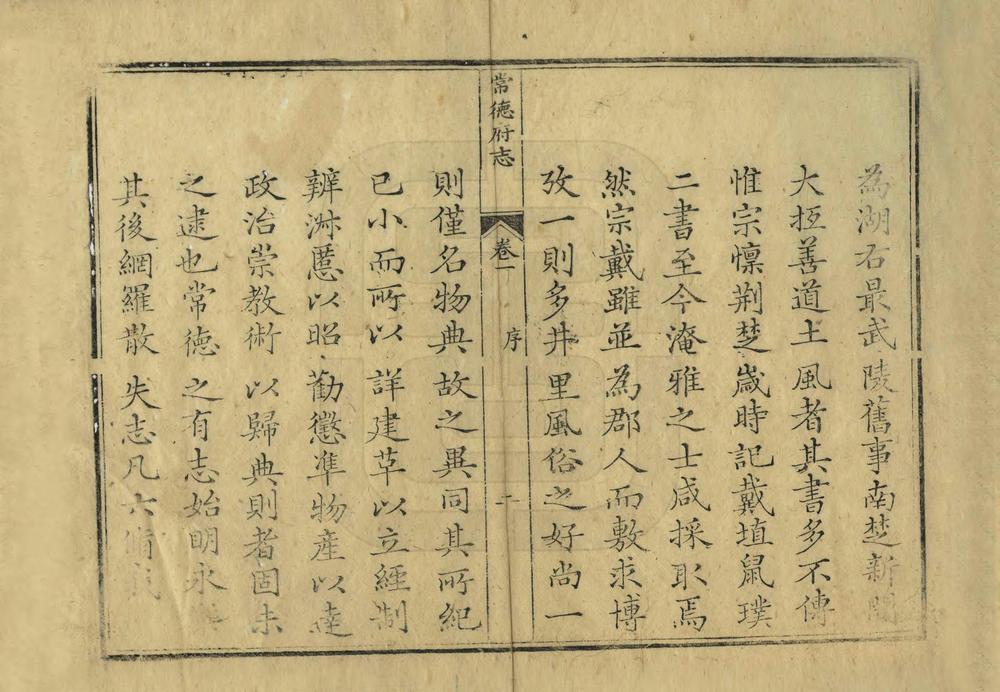 為湖右最武陵舊事南楚新聞
大抵善道土風者其書多不傳
惟宗懍荆楚歲時記戴埴鼠璞
二書至今淹雅之士咸採取焉
然宗戴雖並為郡人而敷求博
攷一則多井里風俗之好尚一
常德府志
卷一
序
二
則僅名物典故之異同其所紀
已小而所以詳建革以立經制
辨淑慝以昭勸懲準物產以達
政治崇教術以歸典則者固未
之逮也常德之有志始明永
其後網羅散失志凡六脩